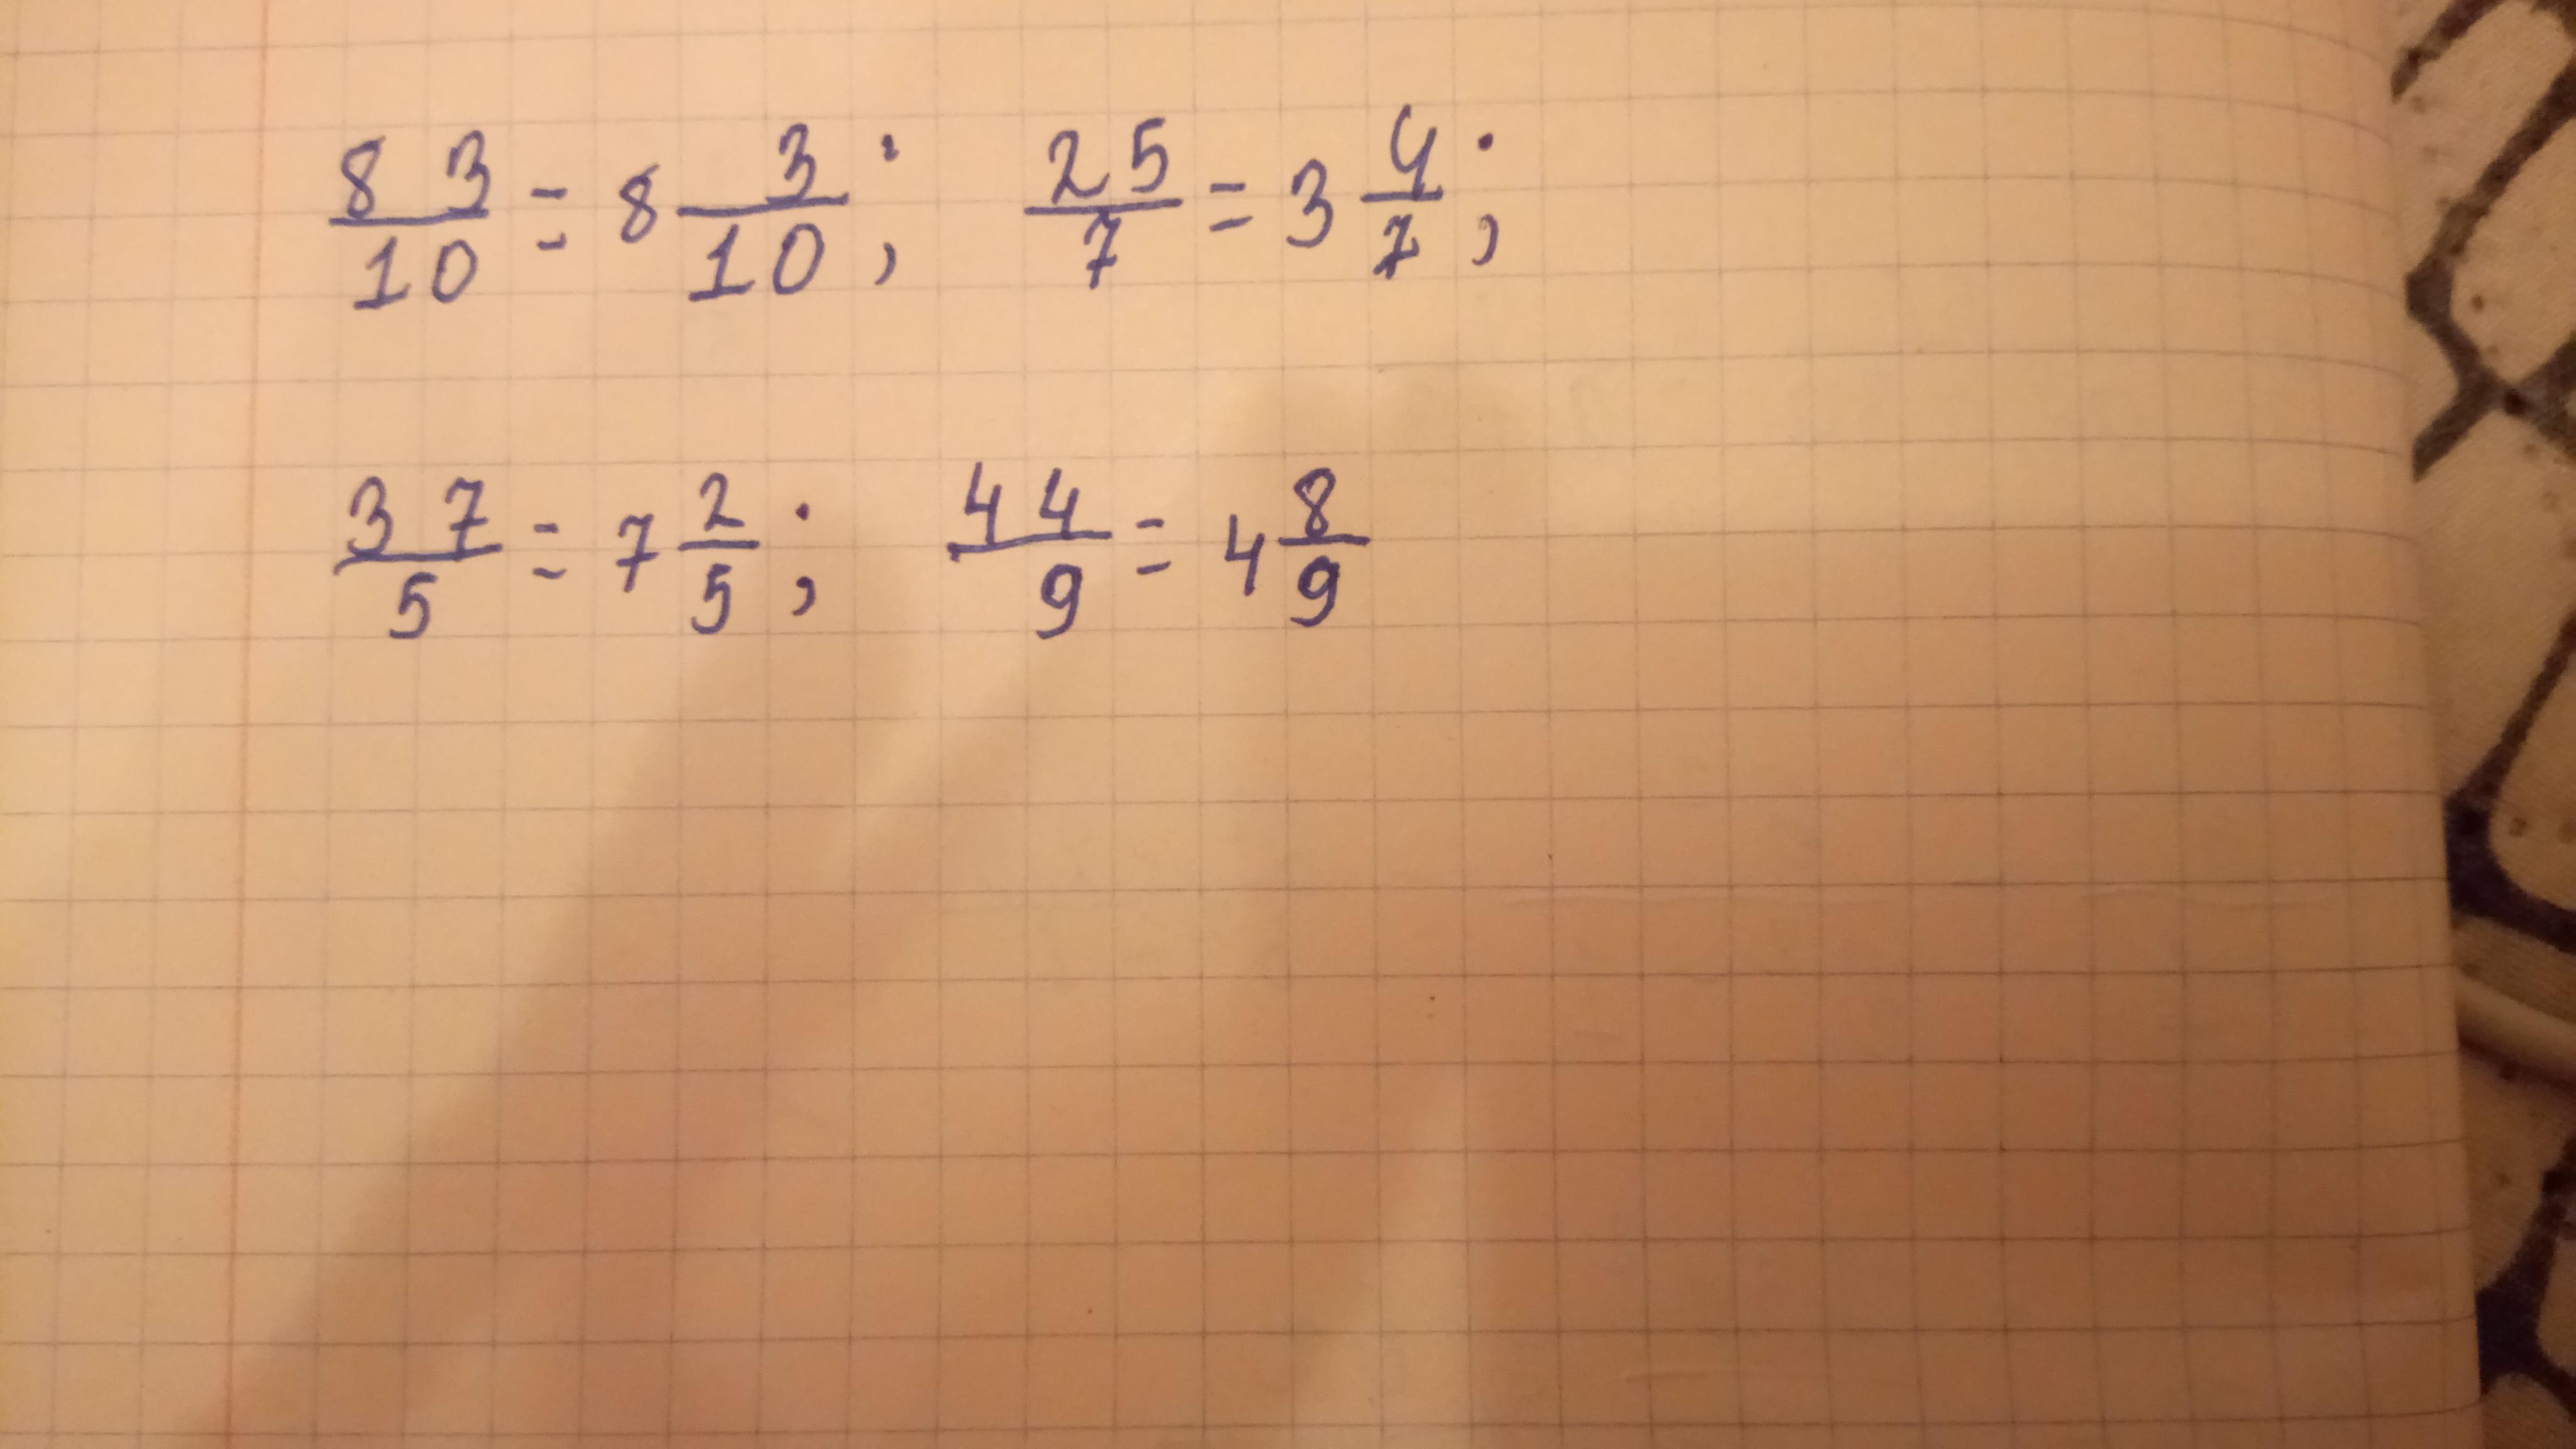 83/10 = 8 3/10; 25/7 = 3 4/7;
37/5 = 7 2/5; 44/9 = 4 8/9